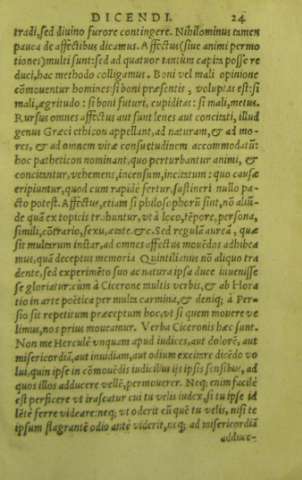 DICENDI. 24
tradi, sed diuino furore contingere. Nihilominus tamen
pauca de affectibus dicamus. Affectus (siue animi permo
tiones) multi sunt: sed ad quatuor tantùm capita posse re
duci, hac methodo colligamus. Boni vel mali opinione
cõmouentur homines: si boni præsentis, voluptas est: si
mali, ægritudo: si boni futuri, cupiditas: si mali, metus.
Rursus omnes affectus aut sunt lenes aut concitati, illud
genus Græci ethicon appellant, ad naturam, & ad mo-
res, & ad omnem vitæ consuetudinem accommodatũ:
hoc patheticon nominant, quo perturbantur animi, &
concitantur, vehemens, incensum, incitatum: quo causæ
eripiuntur, quod cum rapidè fertur, sustineri nullo pa-
cto potest. Affectus, etiam si philosophorũ sint, nõ aliũ-
de quã ex topicis trahuntur, vt à loco, tẽpore, persona,
simili, cõtrario, sexu, ætate, &c. Sed regulã aureã, quæ
sit multarum instar, ad omnes affectus mouẽdos adhibea
mus, quã deceptus memoria Quintilianus nõ aliquo tra
dente, sed experimẽto suo ac natura ipsa duce inuenisse
se gloriatur: cùm à Cicerone multis verbis, & ab Hora
tio in arte poëtica per multa carmina, & deniq; à Per-
sio sit repetitum præceptum hoc, vt si quem mouere ve
limus, nos prius moueamur. Verba Ciceronis hæc sunt.
Non me Herculè vnquam apud iudices, aut dolorẽ, aut
misericordiã, aut inuidiam, aut odium excitare dicẽdo vo
lui, quin ipse in cõmouẽdis iudicibus ijs ipsis sensibus, ad
quos illos adducere vellẽ, permouerer. Neq; enim facilè
est perficere vt irascatur cui tu velis iudex, si tu ipse id
lẽtè ferre videare: neq; vt oderit eũ quẽ tu velis, nisi te
ipsum flagrantẽ odio antè viderit, neq; ad misericordiã
adduce-